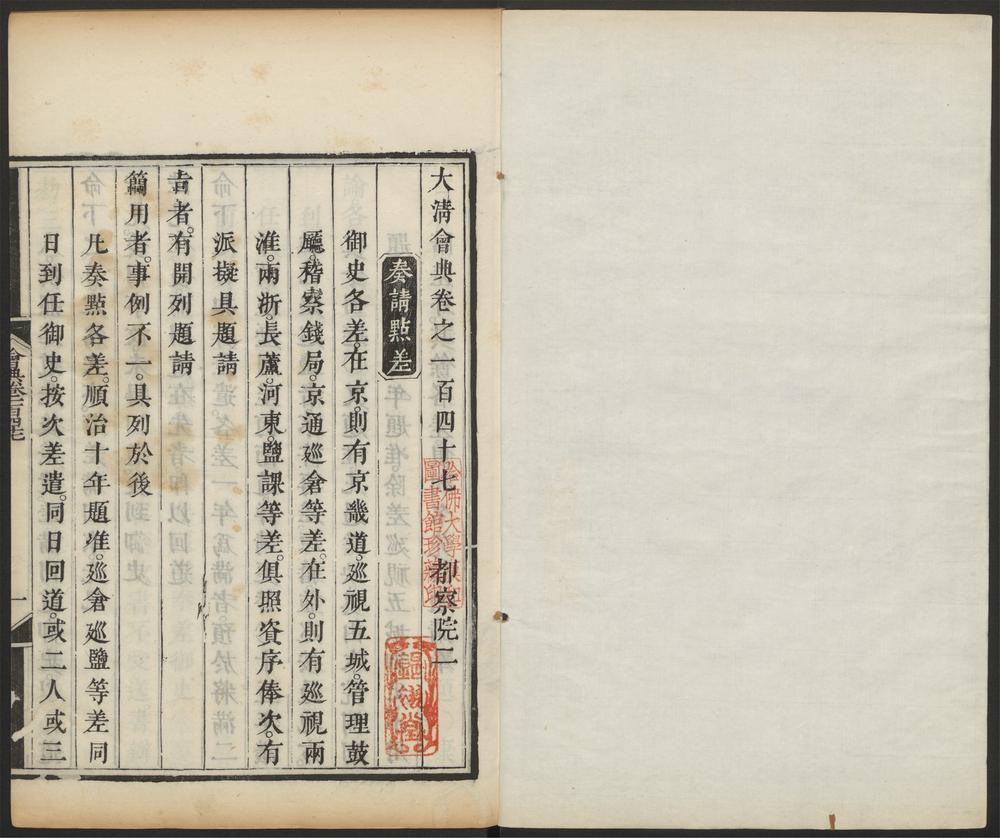 大淸會典卷之一百四十七 都察院二
奏請點差
御史各差。在京。則有京畿道。廵視五城。管理鼓
廳。稽察錢局。京通廵倉等差。在外。則有廵視兩
淮。兩浙。長蘆。河東。鹽課等差。俱照資序俸次。有
派擬具題請
旨者。有開列題請
簡用者。事例不一。具列於後
凡奏點各差。順治十年題准。廵倉廵鹽等差同
日到任御史。按次差遣。同日回道。或二人或三
會典卷一百四十七
一
哈佛大學漢和
圖書館珍藏印